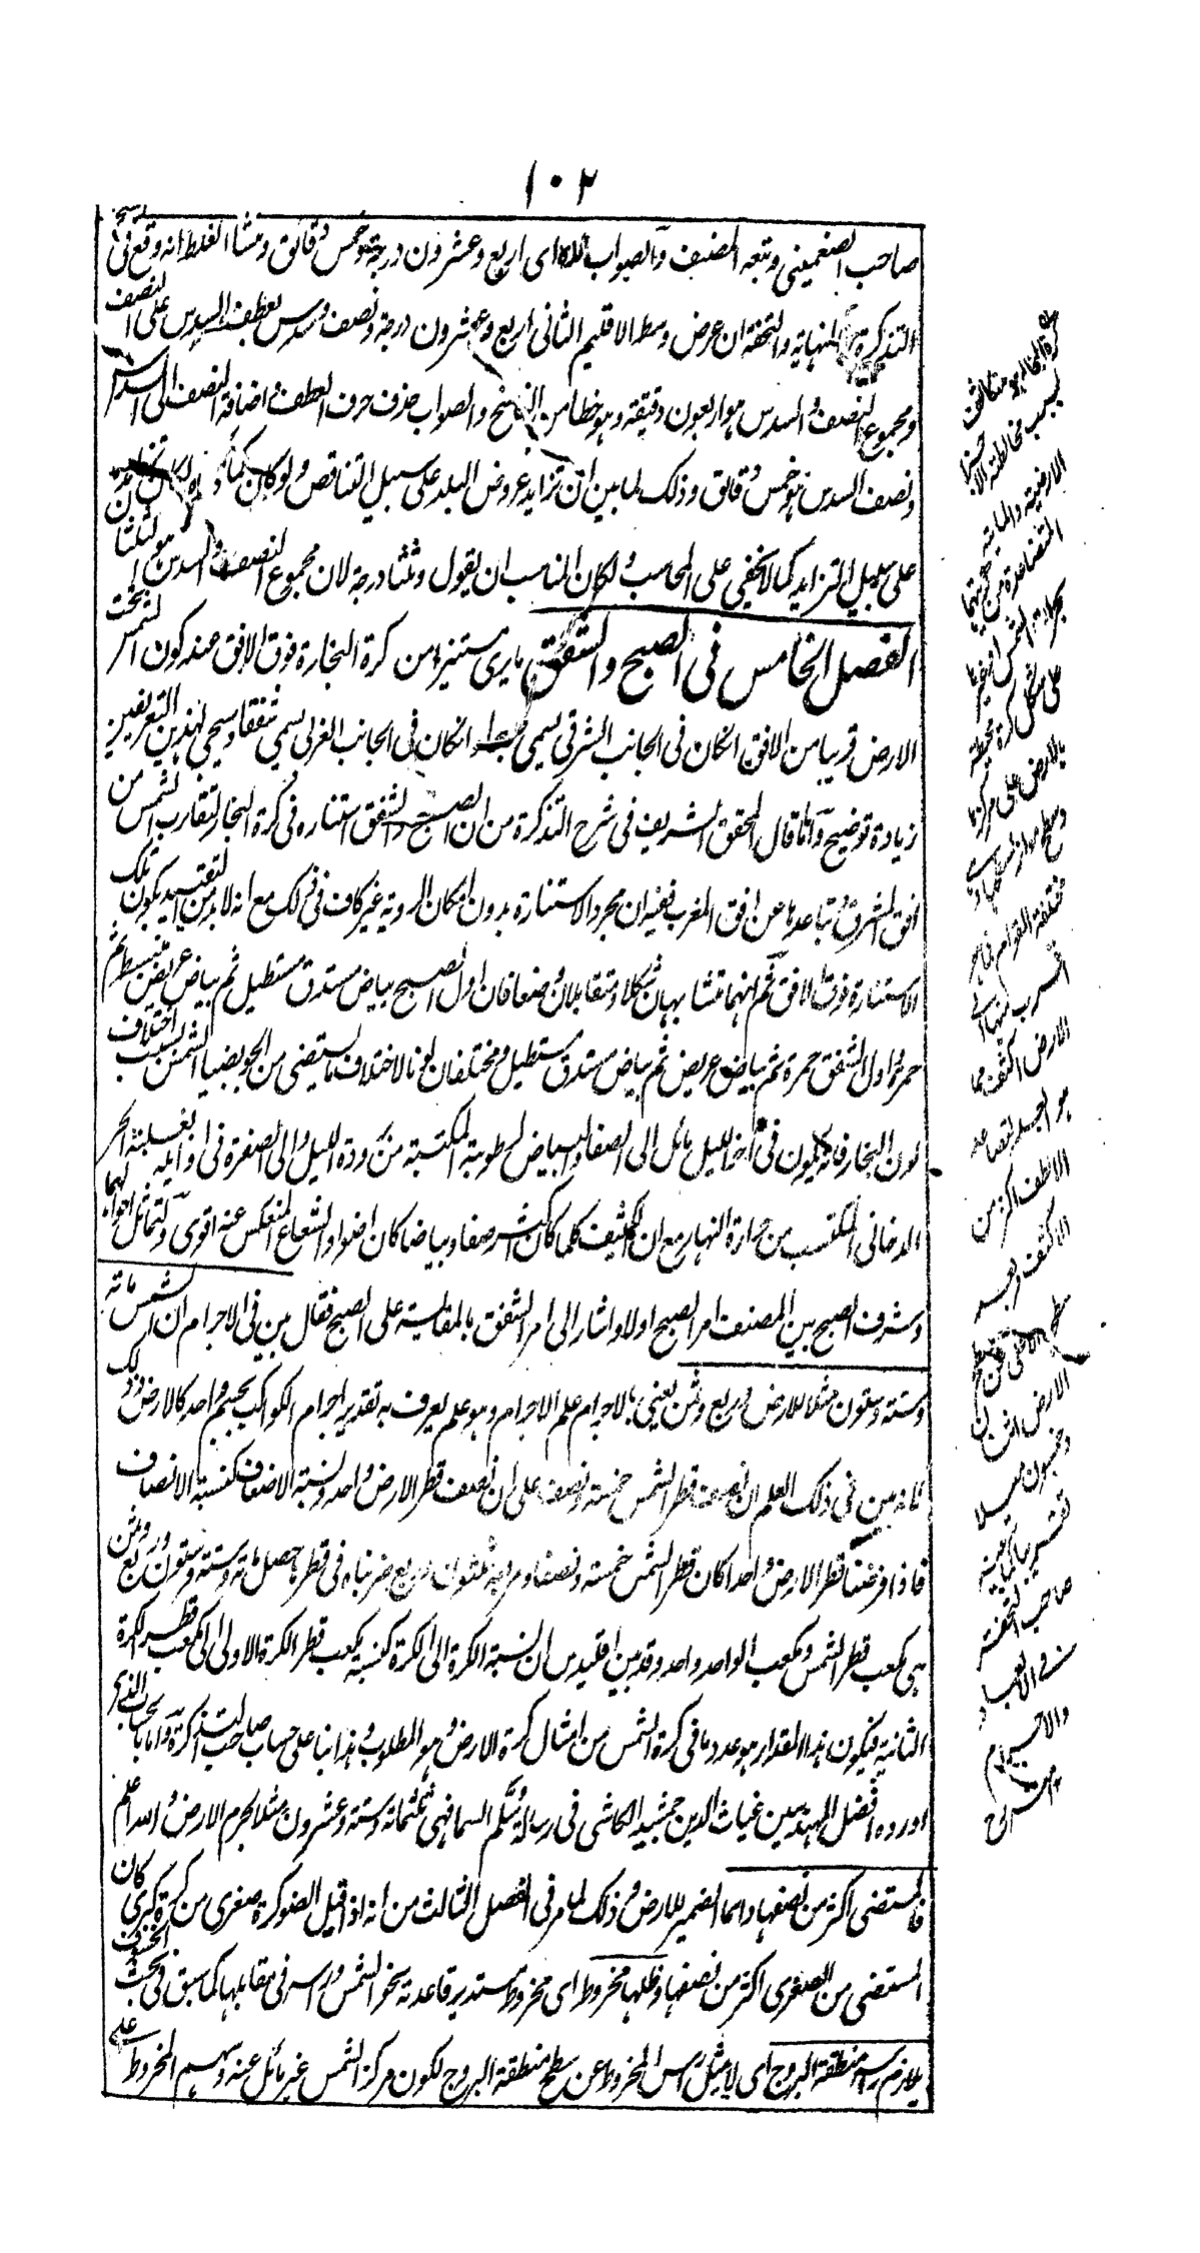 ١٠٢
صاحب الصغميني وتبعه المصنف والصواب اى اربع وعشرون درجة وخمس دقائق ومنشا الغلط انه وقع فى نسخ
التذكرة النهاية والتحفة ان عرض وسط الاقليم الثانى اربع وعشرون درجة ونصف وسدس بعطف السدس على النصف
ومجموع النصف والسدس هو اربعون دقيقة وهو خطا من النسخ والصواب حذف حرف العطف واضافة النصف الى السدس
ونصف السدس هو خمس دقائق وذلك لما بين ان تزايد عروض البلد على سبيل التناقص ولو كان
على سبيل التزايد كما لا يخفى على المحاسب ولكان المناسب ان يقول وثلثا درجة لان مجموع النصف والسدس هو الثلثان
الفصل الخامس فى الصبح والشفق ما يرى مستنيرا من كرة البخارة فوق الافق عند كون الشمس تحت
الارض قريبا من الافق ان كان فى الجانب الشرقى يسمى صبحا وانكان فى الجانب الغربى يسمى شفقا وسيجى لهذين التعريفين
زيادة توضيح وآما ما قال المحقق الشريف فى شرح التذكرة من ان الصبح والشفق استنارة فى كرة البخار لتقارب الشمس من
افق المشرق وتباعدها عن افق المغرب ففيه ان مجرد الاستنارة بدون امكان الروية غير كاف فى ذلك مع انه لا بد من التقييد بكون تلك
الاستنارة فوق الافق ثم انهما متشابهان شكلا ومتقابلان وضعا فان اول الصبح بياض مستدق مستطيل ثم بياض عريض منبسط ثم
حمرة واول الشفق حمرة ثم بياض عريض ثم بياض مستدق مستطيل ومختلفان لونا لاختلاف ما يستضى من الجو بضياء الشمس بسبب اختلاف
لون البخار فانه يكون فى آخر الليل مائل الى الصفا والبياض لرطوبة المكتسبة من برودة الليل والى الصفرة فى اوائله لغلبة الحر
الدخانى المكتسب من حرارة النهار مع ان الكثيف كلما كان اكثر صفا وبياضا كان اضوا والشعاع المنعكس عنه اقوى ولتماثل احوالهما
وشرف الصبح بين المصنف امر الصبح اولا واشار الى امر الشفق بالمقايسة على الصبح فقال بين فى الاجرام ان الشمس مائة
وستة وستون مثلا للارض وربع وثمن يعنى بالاجرام علم الاجرام وهو علم يعرف به تقدير اجرام الكواكب بجسم واحد كالارض وذلك
لما بين فى ذلك العلم ان نصف قطر الشمس خمسة ونصف على ان نصف قطر الارض واحد ونسبة الاضعاف كنسبة الانصاف
فاذا فرضنا قطر الارض واحدا كان قطر الشمس خمسة ونصفا ومربعه ثلثون وربع ضربناه فى قطرها حصل مائة وستة وستون وربع وثمن
هى مكعب قطر الشمس ومكعب الواحد واحد وقد بين اقليدس ان نسبة الكرة الى الكرة كنسبة مكعب قطر الكرة الاولى الى مكعب قطر الكرة
الثانية فيكون هذا المقدار هو عدد ما فى كرة الشمس من امثال كرة الارض وهو المطلوب وهذا بنا على حساب صاحب التذكرة وآما بالحساب الذى
اورده افضل المهندسين غياث الدين جمشيد الكاشى فى رسالة سلم السما فهى ثلثمائة وستة وعشرون مثلا لجرم الارض والله اعلم
فالمستضى اكثر من نصفها دائما الضمير للارض وذلك لما مر فى الفصل الثالث من انه اذا قبل الضو كرة صغرى من كرة كبرى كان
المستضى من الصغرى اكثر من نصفها وظلها مخروط اى مخروط مستدير قاعدته نحو الشمس وراسه فى مقابلها كما سبق فى بحث الخسوف
يلازم راسه منطقة البروج اى لا يميل راس المخروط عن سطح منطقة البروج لكون مركز الشمس غير مائل عنه وسهم المخروط على
كرة البخار هو متكاثف
بسبب مخالطة الاجزا
الارضية والمائية
المتصاعدة من كرتيهما
بحرارة الشمس او غيرها
على شكل كرة محيطة
بالارض على مركزها
وسطح مواز لسطحها
مختلفة القوام فما هو
اقرب منها الى
الارض اكثف مما
هو ابعد لتصاعد
الالطف اكثر من
الاكثف وبعد
سطحها الاعلى عن سطح
الارض اثنان
وخمسون ميلا
تقريبا كما بينه
صاحب التحفة
فى الابعاد
والاجرام
شرح